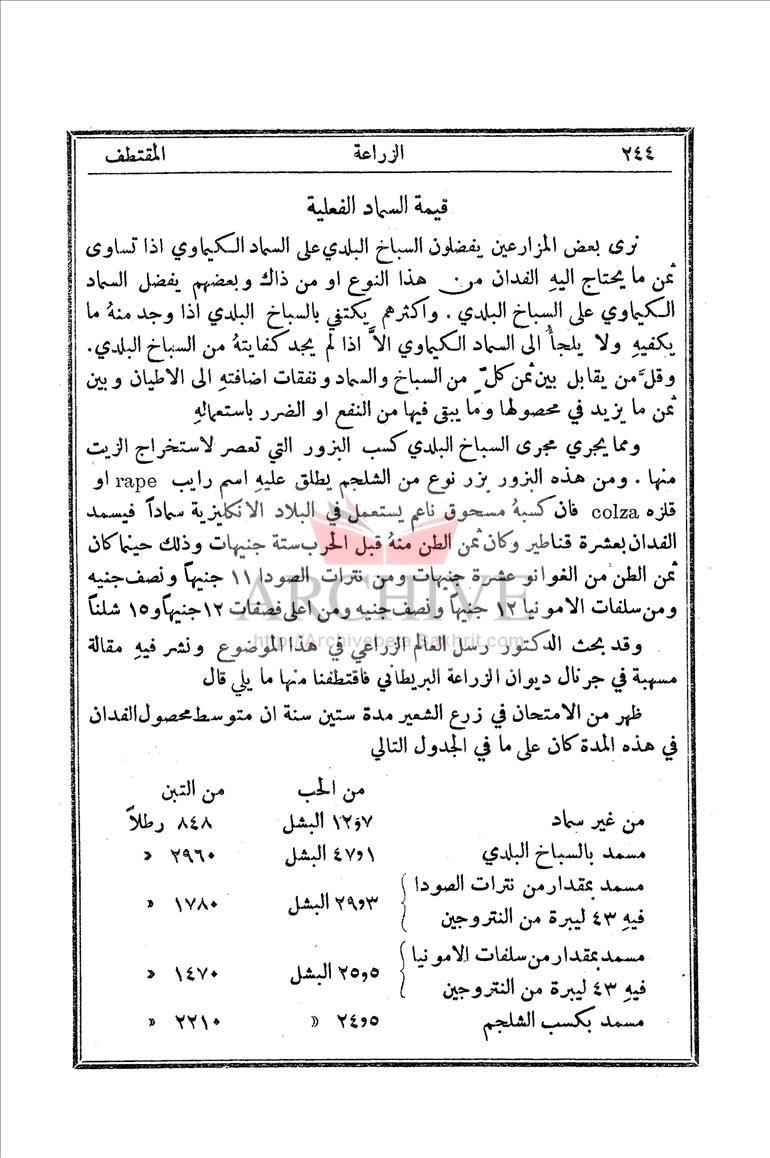 ٢٤٤ الزراعة المقتطف
قيمة السماد الفعلية
نرى بعض المزارعين يفضلون السباخ البلدي على السماد الكيماوي اذا تساوى
ثمن ما يحتاج اليهِ الفدان من هذا النوع او من ذاك وبعضهم يفضل السماد
الكيماوي على السباخ البلدي . واكثرهم يكتفي بالسباخ البلدي اذا وجد منهُ ما
يكفيهِ ولا يلجأُ الى السماد الكيماوي الاَّ اذا لم يجد كفايتهُ من السباخ البلدي.
وقلَّ من يقابل بين ثمن كلٍّ من السباخ والسماد ونفقات اضافتهِ الى الاطيان وبين
ثمن ما يزيد في محصولها وما يبقى فيها من النفع او الضرر باستعمالهِ
ومما يجري مجرى السباخ البلدي كسب البزور التي تعصر لاستخراج الزيت
منها . ومن هذه البزور بزر نوع من الشلجم يطلق عليهِ اسم رايب rape او
قلزه colza فان كسبهُ مسحوق ناعم يستعمل في البلاد الانكليزية سماداً فيسمد
الفدان بعشرة قناطير وكان ثمن الطن منهُ قبل الحرب ستة جنيهات وذلك حينما كان
ثمن الطن من الغوانو عشرة جنيهات ومن نترات الصودا ١١ جنيهاً ونصف جنيه
ومن سلفات الامونيا ١٢ جنيهاً ونصف جنيه ومن اعلى فصفات ١٢ جنيهاً و١٥ شلناً
وقد بحث الدكتور رسل العالم الزراعي في هذا الموضوع ونشر فيهِ مقالة
مسهبة في جرنال ديوان الزراعة البريطاني فاقتطفنا منها ما يلي قال
ظهر من الامتحان في زرع الشعير مدة ستين سنة ان متوسط محصول الفدان
في هذه المدة كان على ما في الجدول التالي
من الحب من التبن
من غير سماد ١٢٫٧ البشل ٨٤٨ رطلاً
مسمد بالسباخ البلدي ٤٧٫١ البشل ٢٩٦٠ »
مسمد بمقدار من نترات الصودا
فيهِ ٤٣ ليبرة من النتروجين ٢٩٫٣ البشل ١٧٨٠ »
مسمد بمقدار من سلفات الامونيا
فيهِ ٤٣ ليبرة من النتروجين ٢٥٫٥ البشل ١٤٧٠ »
مسمد بكسب الشلجم ٢٤٫٥ » ٢٢١٠ »
ARCHIVE
http://Archivebeta.Sakhrit.com